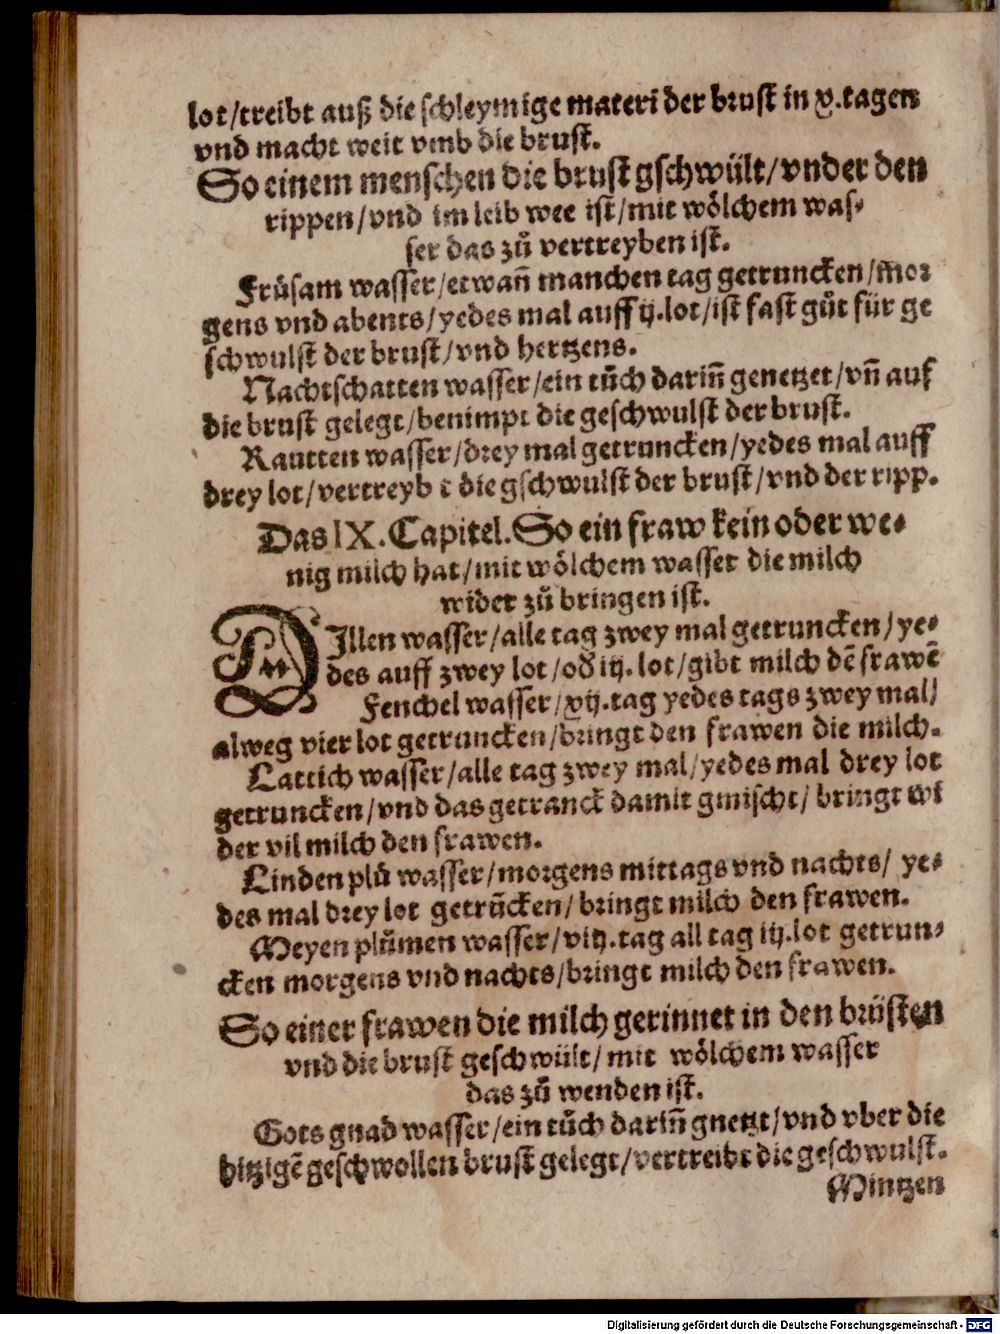 lot/treibt auß die schleymige materi der brust in x.tagen
vnd macht weit vmb die brust.
So einem menschen die brust gschwült/vnder den
rippen/vnd im leib wee ist/mit wölchem was⸗
ser das zů vertreyben ist.
Frůsam wasser/etwañ manchen tag getruncken/mor
gens vnd abents/yedes mal auff ij.lot/ist fast gůt für ge
schwulst der brust/vnd hertzens.
Nachtschatten wasser/ein tůch dariñ genetzet/vñ auf
die brust gelegt/benimpt die geschwulst der brust.
Rautten wasser/drey mal getruncken/yedes mal auff
drey lot/vertreybt die gschwulst der brust/vnd der ripp.
Das IX. Capitel. So ein fraw kein oder we⸗
nig milch hat/mit wölchem wasser die milch
wider zů bringen ist.
DIllen wasser/alle tag zwey mal getruncken/ye⸗
des auff zwey lot/od iij.lot/gibt milch dē frawē
Fenchel wasser/xij.tag yedes tags zwey mal/
alweg vier lot getruncken/bringt den frawen die milch.
Lattich wasser/alle tag zwey mal/yedes mal drey lot
getruncken/vnd das getranck damit gmischt/bringt wi
der vil milch den frawen.
Linden plů wasser/morgens mittags vnd nachts/ye⸗
des mal drey lot getrūcken/bringt milch den frawen.
Meyen plůmen wasser/viij.tag all tag iij.lot getrun⸗
cken morgens vnd nachts/bringt milch den frawen.
So einer frawen die milch gerinnet in den brüsten
vnd die brust geschwült/mit wölchem wasser
das zů wenden ist.
Gots gnad wasser/ein tůch dariñ gnetzt/vnd vber die
hitzigē geschwollen brust gelegt/vertreibt die geschwulst.
Mintzen
Digitalisierung gefördert durch die Deutsche Forschungsgemeinschaft - DFG